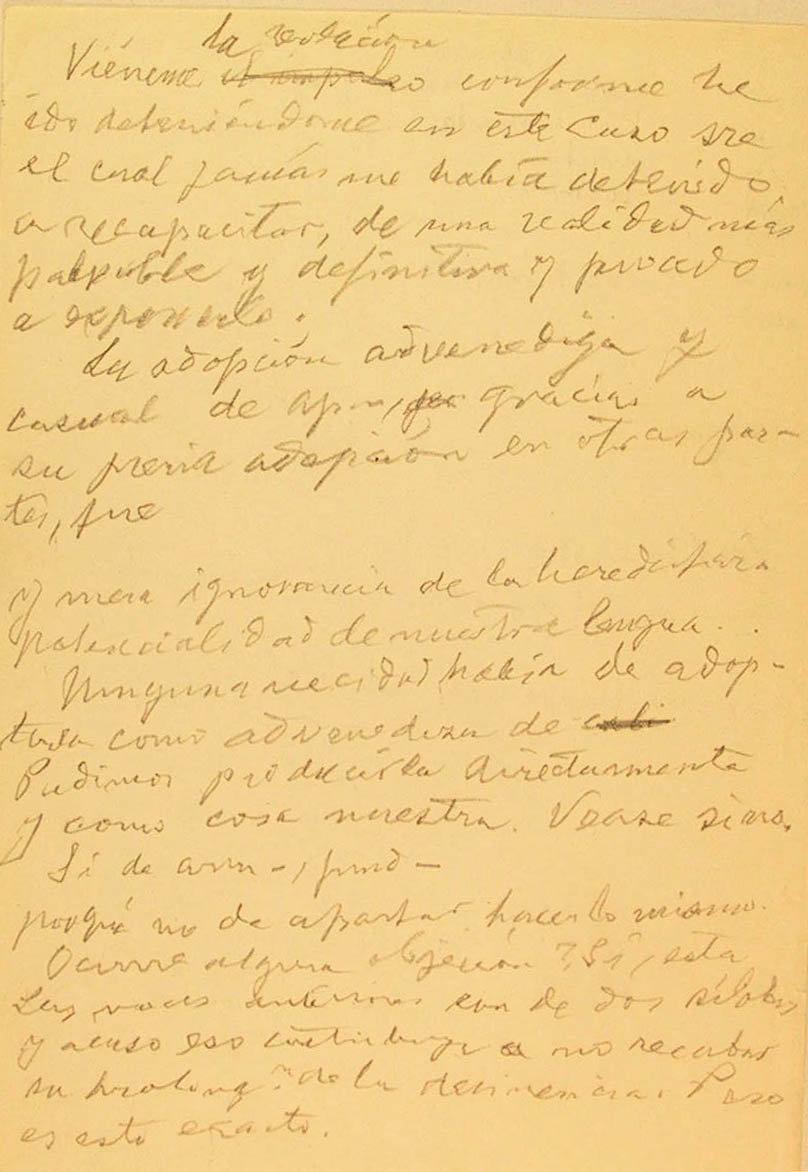 la
Viéneme el impulso conforme he
ido deteniéndome en este caso sre
el cual jamás me había detenido
a recapacitar, de una realidad más
palpable y definitiva y
a
La adopción advenediza y
casual de gracias a
su previa adopción en otras par-
tes, fue
y mera ignorancia de la hereditaria
potencialidad de nuestra lengua.
Ninguna necesidad había de adop-
tarla como advenediza de
Pudimos producirla directamente
y como cosa nuestra. Vease sino.
Si de
porqué no de apartar hacer lo mismo.
Ocurre alguna objeción? Sí, esta
Las voces anteriores son de dos sílabas
y acaso eso contribuye a no recabar
su prolongn. de la desinencia. Pero
es esto exacto.